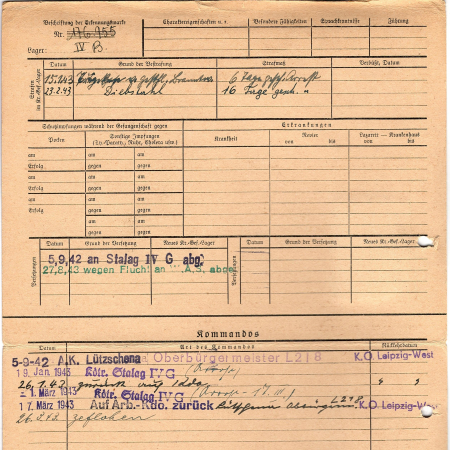 Beschriftung der Erkennungsmarke
Nr. 176.955
Lager: IV B.
Charaktereigenschaften u. s.
Besondere Fähigkeiten
Sprachkenntnisse
Führung
Strafen im Kr.-Gef.-Lager
Datum Grund der Bestrafung Strafmaß Verbüßt, Datum
15.9.43 6 Tage gesch. Arrest
23.2.43 Diebstahl 16 Tage gesch. "
Schutzimpfungen während der Gefangenschaft gegen
Erkrankungen
Pocken
Sonstige Impfungen
(Ty.-Paraty., Ruhr, Cholera usw.)
Krankheit
Revier
von bis
Lazarett — Krankenhaus
von bis
am am am
Erfolg gegen gegen
am am am
Erfolg gegen gegen
am am am
Erfolg gegen gegen
am am
gegen gegen
Versetzungen
Datum Grund der Versetzung Neues Kr.-Gef.-Lager
Versetzungen
Datum Grund der Versetzung Neues Kr.-Gef.-Lager
5,9.42 an Stalag IV G abg.
27,8.43 wegen Flucht an A.S. abge
Kommandos
Datum Art des Kommandos Rückkehrdatum
5-9-42 A.K. Lützschena Oberbürgermeister L 218 K.O. Leipzig-West
19. Jan. 1943 Kdtr. Stalag IV G
26.1.43 zurück auf " "
-1. März 1943 Kdtr. Stalag IV G
17. März 1943 Auf Arb.-Kdo. zurück L218 K.O. Leipzig-West
geflohen